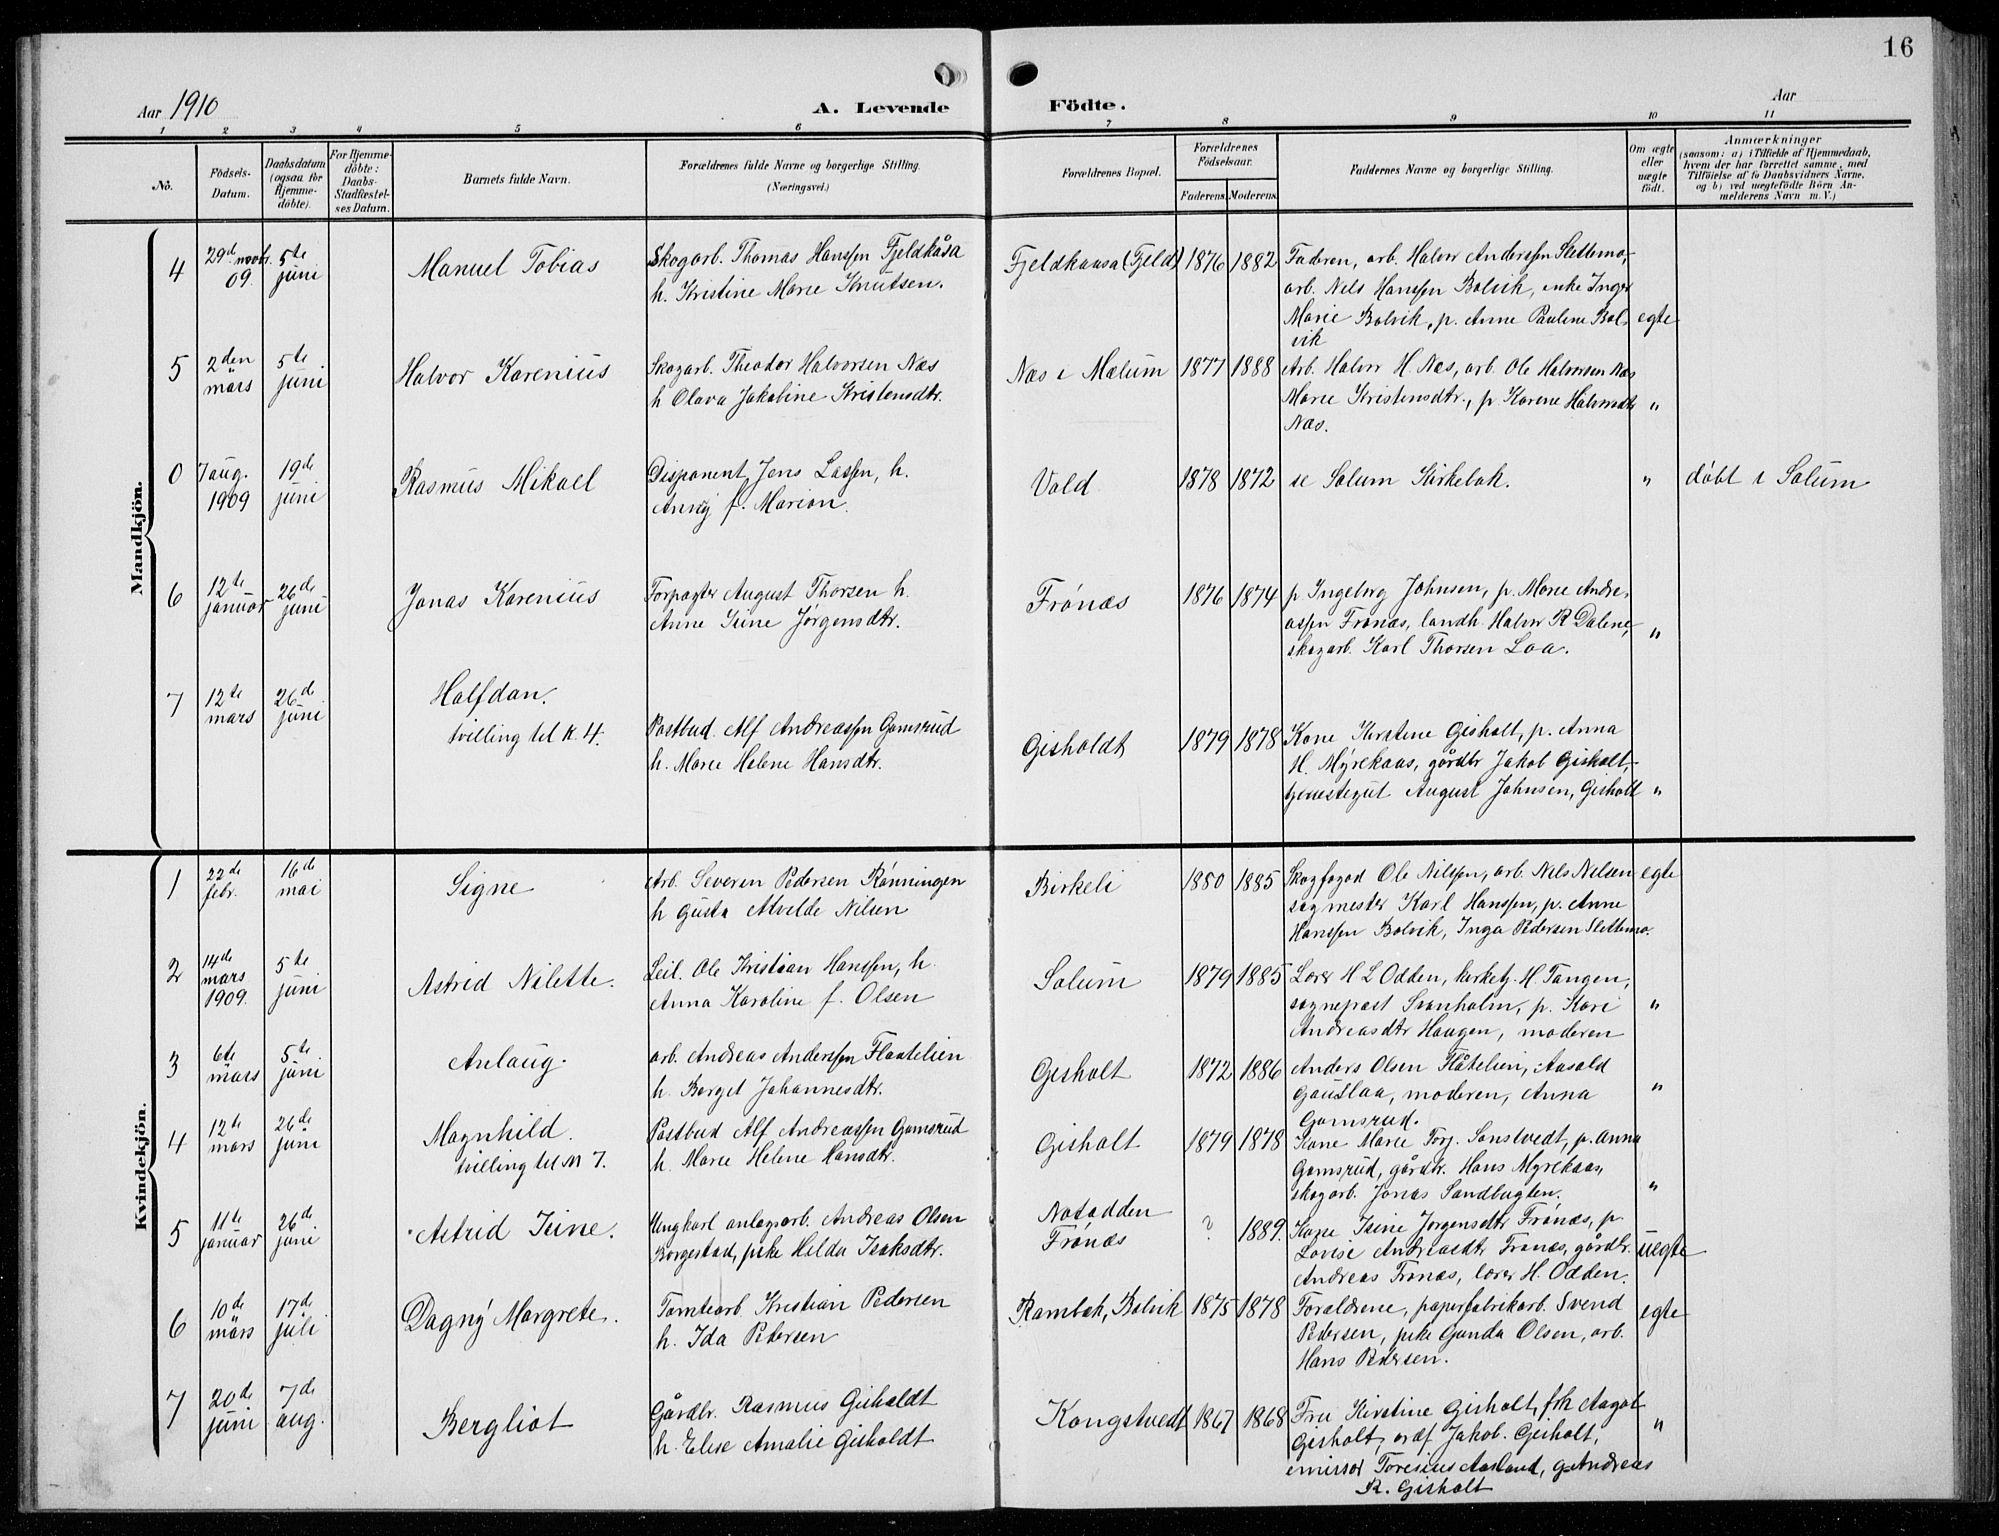 16
Aar 1910
A. Levende Födte.
Aar
1 2 3 4 5 6 7 8 9 10 11
No.
Födsels-Datum.
Daabsdatum (ogsaa for Hjemme-döbte).
For Hjemme-döbte: Daabs-Stadfæstel-ses Datum.
Barnets fulde Navn.
Forældrenes fulde Navne og borgerlige Stilling.
(Næringsvei.)
Forældrenes Bopæl.
Forældrenes Födselsaar.
Faderens. Moderens.
Faddernes Navne og borgerlige Stilling.
Om ægte eller uægte födt.
Anmærkninger
(saasom: a) i Tilfælde af Hjemmedaab,
hvem der har forrettet samme, med
Tilföielse af to Daabsvidners Navne,
og b) ved uægtefödte Börn An-
melderens Navn m. V.)
Mandkjön.
4 29d novbr. 09. 5te juni Manuel Tobias
Skogarb. Thomas Hanssen Fjeldkåsa
h. Kristine Marie Knutsen.
Fjeldkaasa (Fjeld) 1876 1882
Faderen, arb. Halvor Anderssen Slettemo,
arb. Nels Hanssen Bolvik, enke Inger
Marie Bolvik, p. Anne Paulene Bol-
vik
egte
5 2den mars 5te juni Halvor Karenius
Skogarb. Theodor Halvorsen Næs
h Olava Jakobine Kristensdtr.
Næs i Mælum 1877 1888
Arb. Halvor H. Næs, arb. Ole Halvorsen Næs
Marie Kristensdtr., p. Karene Halvorsdtr
Næs.
"
0 7 aug. 1909 19de juni Rasmus Mikael
Disponent Jens Lassen, h.
f. Marion.
Vold 1878 1872
se Solum Kirkebok.
"
døbt i Solum
6 12te januar 26de juni Jonas Karenius
Forpagter August Thorsen h.
Anne Isine Jørgensdtr.
Frönæs 1876 1874
p. Ingeborg Johnsen, p. Marie Andre-
assen Frönæs, landh. Halvor R Dalene,
skogarb. Karl Thorsen Loa.
"
7 12te mars 26d juni Halfdan.
tvilling til K. 4.
Postbud Alf Andreassen Gamsrud
h. Marie Helene Hansdtr.
Gisholdt 1879 1878
Kone Kirstine Gisholt, p. Anna
H. Myrekaas, gårdbr Jakob Gisholt,
tjenestegut August Johnsen, Gisholt
"
Kvindekjön.
1 22de febr. 16de mai Signe
Arb. Severen Pedersen Rønningen
h Gusta Alvilde Nilsen
Birkeli 1880 1885
Skogfogod Ole Nilssen, arb. Nels Nilsen
sagmester Karl Hanssen, p. Anne
Hanssen Bolvik, Inga Pedersen Slettemo.
egte
2 14de mars 1909. 5te juni Astrid Nilette.
Leil. Ole Kristian Hanssen, h.
Anna Karoline f. Olsen
Solum 1879 1885
Lærer H L Odden, kirketj. H. Tangen,
sogneprest Svanholm, p. Kari
Andreasdtr Haugen, moderen
"
3 6te mars 5te juni Anlaug.
arb. Andreas Anderssen Flaatelien
h. Borget Johannesdtr.
Gisholt 1872 1886
Anders Olsen Flåtelien, Aasold
Gauslaa, moderen, Anna
Gamsrud.
"
4 12te mars 26de juni Magnhild.
tvilling til M 7.
Postbud Alf Andreassen Gamsrud
h. Marie Helene Hansdtr.
Gisholt 1879 1878
Kone Marie Torj. Sanstvedt, p. Anna
Gamsrud, gårdbr. Hans Myrekaas,
skogarb. Jonas Sandbugten.
"
5 11te januar 26de juni Astrid Isine.
Ungkarl anlægsarb. Andreas Olsen
Borgestad, pike Helda Isaksdtr.
Notodden
Frönæs ? 1889.
Kone Isine Jørgensdtr Frönæs, p
Lovise Andreasdtr Frönæs, gårdbr.
Andreas Frønæs, lærer H. Odden.
uegte
6 10de mars 17de juli Dagny Margrete.
Tomtearb Kristian Pedersen
h. Ida Pedersen
Rambæk, Bolvik 1875 1878
Forældrene, paperfabrikarb. Svend
Pedersen, pike Gunda Olsen, arb.
Hans Pedersen.
egte
7 20de juni 7de aug. Bergliot
Gårdbr. Rasmus Gisholdt
h. Elise Amalie Gisholdt
Kongstvedt 1867 1868
Fru Kirstine Gisholt, frk Aagot
Gisholt, Jakob. Gisholt,
emissær Toresius Aasland, g. Andreas
R. Gisholt
"